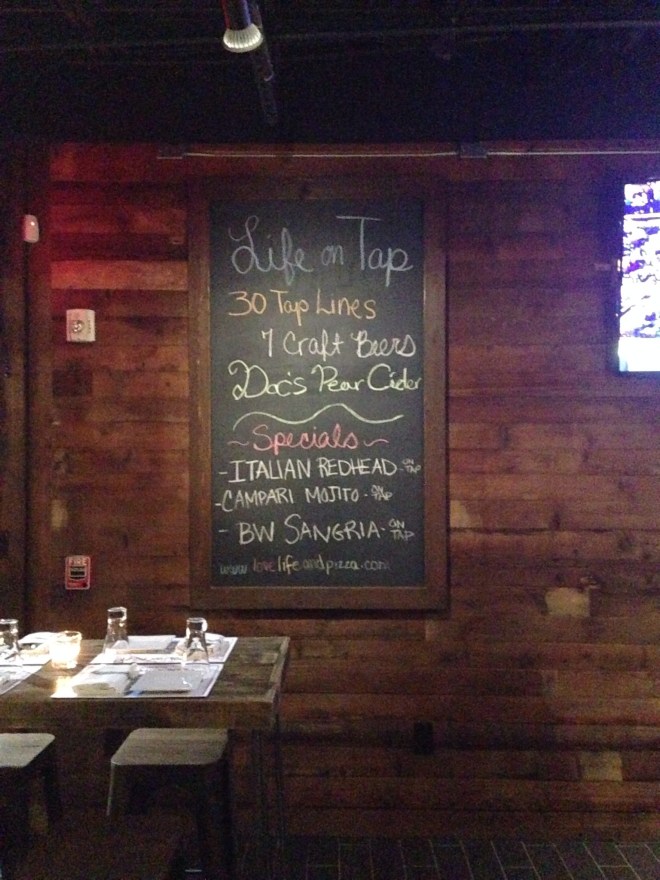 Life on Tap
30 Tap Lines
7 Craft Beers
Doc's Pear Cider
~ Specials ~
- ITALIAN REDHEAD - ON TAP
- CAMPARI MOJITO - ON TAP
- BW SANGRIA - ON TAP
www.lovelifeandpizza.com
FIRE